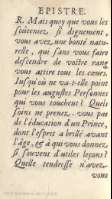 EPISTRE.
R. Mais quoy que vous les
soûteniez si dignement,
vous avez une bonté natu-
relle, qui sans vous faire
descendre de vôtre rang
vous attire tous les cœurs.
Jusqu'où ne va-t-elle point
pour les augustes Personnes
qui vous touchent ? Quels
soins ne prenez-vous pas
de l'éducation d'un Prince,
dont l'esprit a brillé avant
l'âge, & à qui vous donnez
si souvent d'utiles leçons ?
Quelle tendresse n'avez-
vous